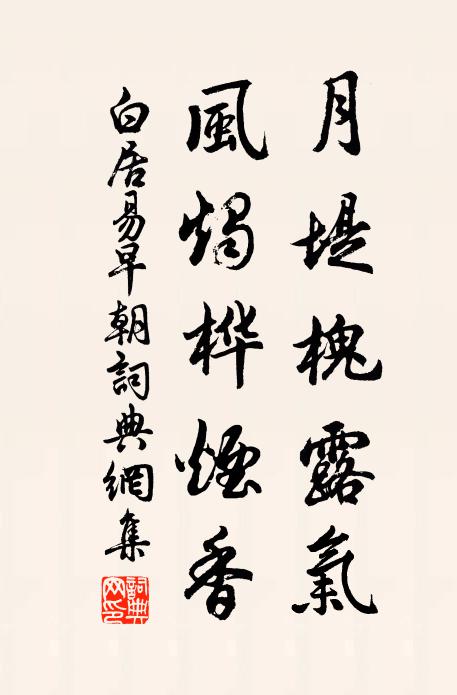 月堤槐露氣
風燭桦煙香
白居易早朝詞典網集
詞典网印